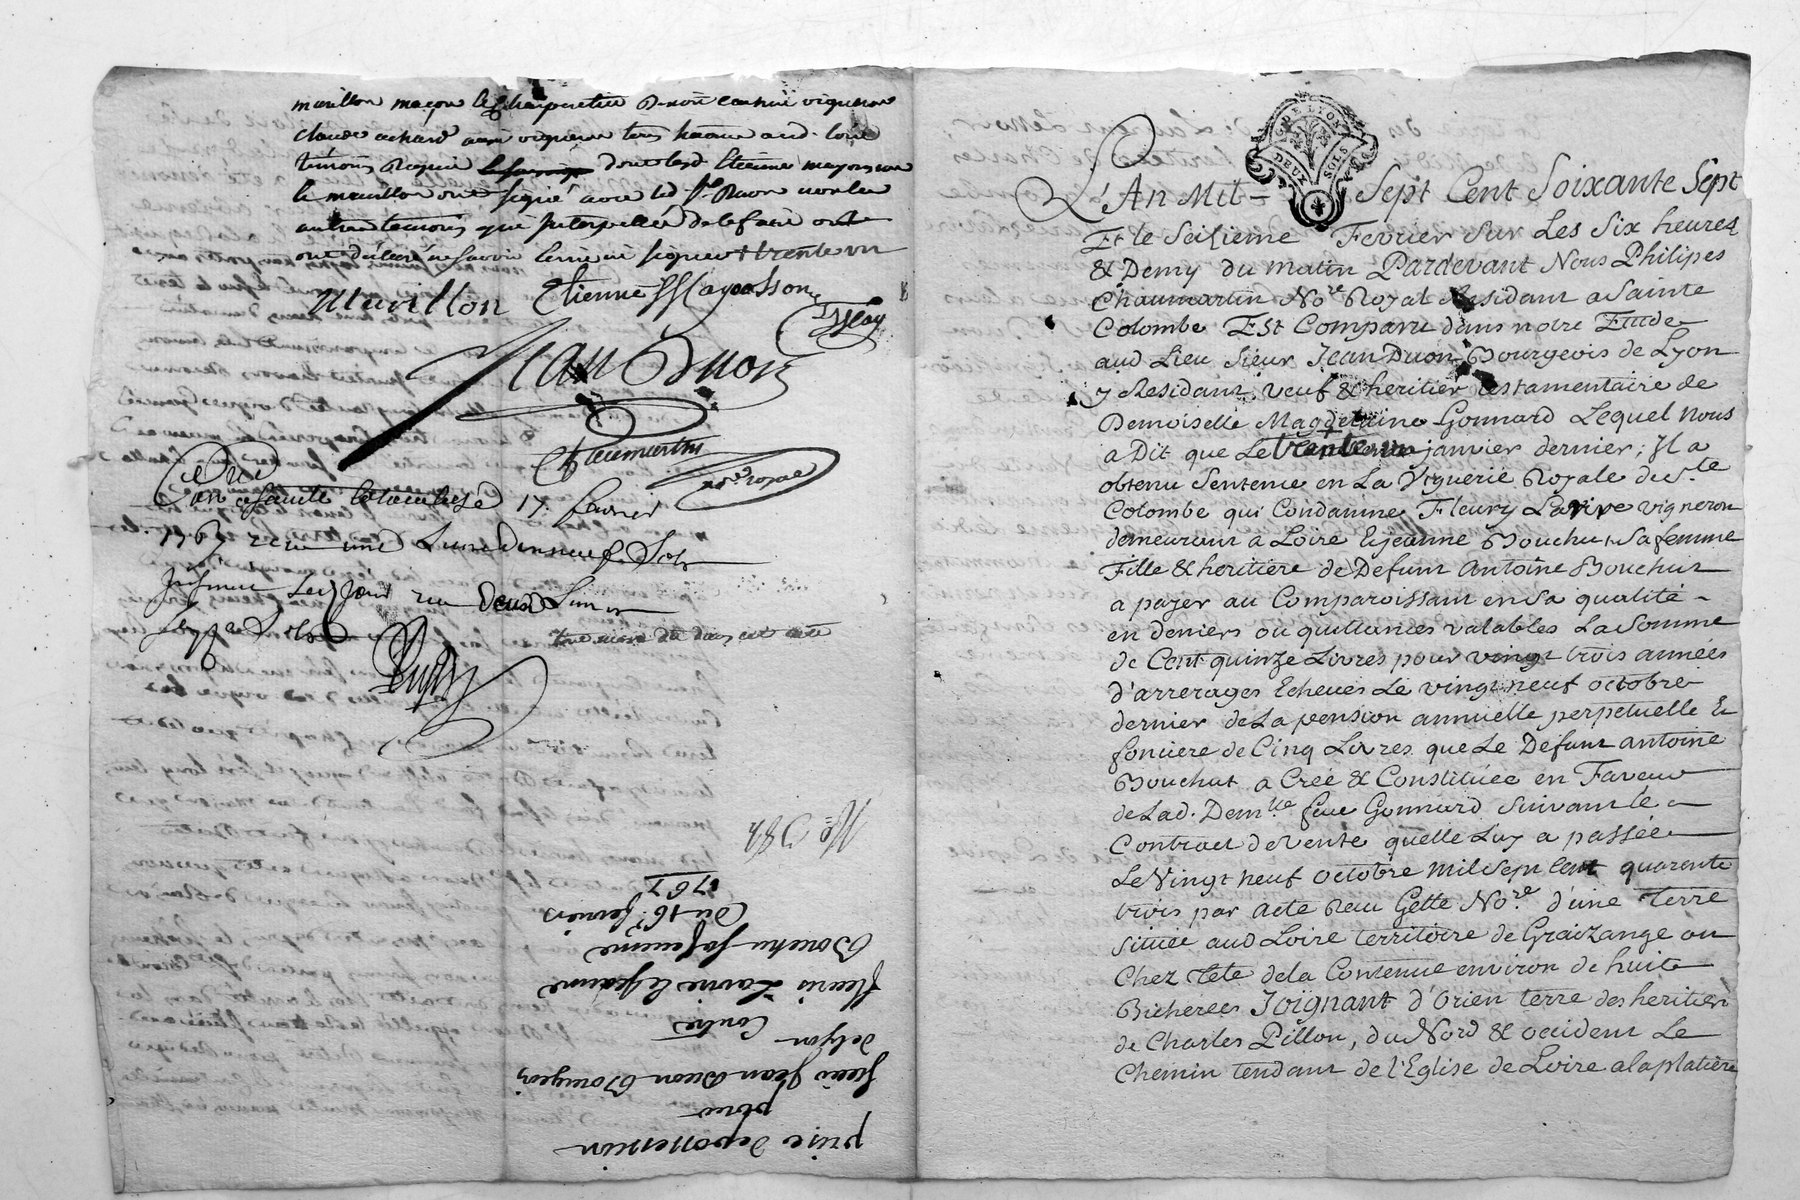 marillon maçon charpentier Benoit vigneron
claude achard aussi vigneron tous
témoins Requis dont lesd. Etienne mayousson
le marillon ont signé avec led. Sr. Duon non les
autres temoins qui interpellés de le faire ont
ont déclaré ne savoir lerne ni signer trente un
Marillon Etienne Mayousson
Jean Duon
Chaumartin
nore. royal
Controllé a Sainte Colombe le 17 fevrier
1767 recu une Livre dix neuf Sols
Deux
No. 384
prise de possession
pour
Sieur Jean Duon Bourgeois
de Lyon
Contre
fleuris Larive & jeanne
Bouchu sa femme
Du 16e. fevrier
1767
G. DE LYON
DEUX SOLS
L'An Mil Sept Cent Soixante Sept
Et le Seisieme Fevrier Sur Les Six heures
& Demy du matin Pardevant Nous Philipes
Chaumartin Nore. Royal Residant a Sainte
Colombe Est Comparu dans notre Etude
aud. Lieu Sieur Jean Duon Bourgeois de Lyon
y Residant, veuf & heritier testamentaire de
Demoiselle Magdelaine Gonnard Lequel Nous
a Dit que Le trente un janvier dernier, Il a
obtenu Sentence en La Viguerie Royale de Ste.
Colombe qui Condamne Fleury Larive vigneron
demeurant a Loire & jeanne Bouchut Sa femme
Fille & heritiere de Defunt Antoine Bouchut
a payer au Comparoissant en Sa qualité
en deniers ou quittances valables La Somme
de Cent quinze Livres pour vingt trois années
d'arrerages Echeues Le vingt neuf octobre
dernier de La pension annuelle perpetuelle &
fonciere de Cinq Livres que Le Defunt antoine
Bouchut a Créé & Constituée en Faveur
de Lad. Demlle. feue Gonnard Suivant le
Contract de Vente quelle Luy a passée
Le Vingt neuf octobre mil Sept Cent quarente
trois par acte Recu Gette Nore. d'une Terre
Située aud. Loire territoire de Graizange ou
Chez Tete de la Contenue environ de huit
Bicherees Joignant d'Orient terre des heritiers
de Charles Pillon, du Nord & occident Le
Chemin tendant de l'Eglise de Loire a la platiere